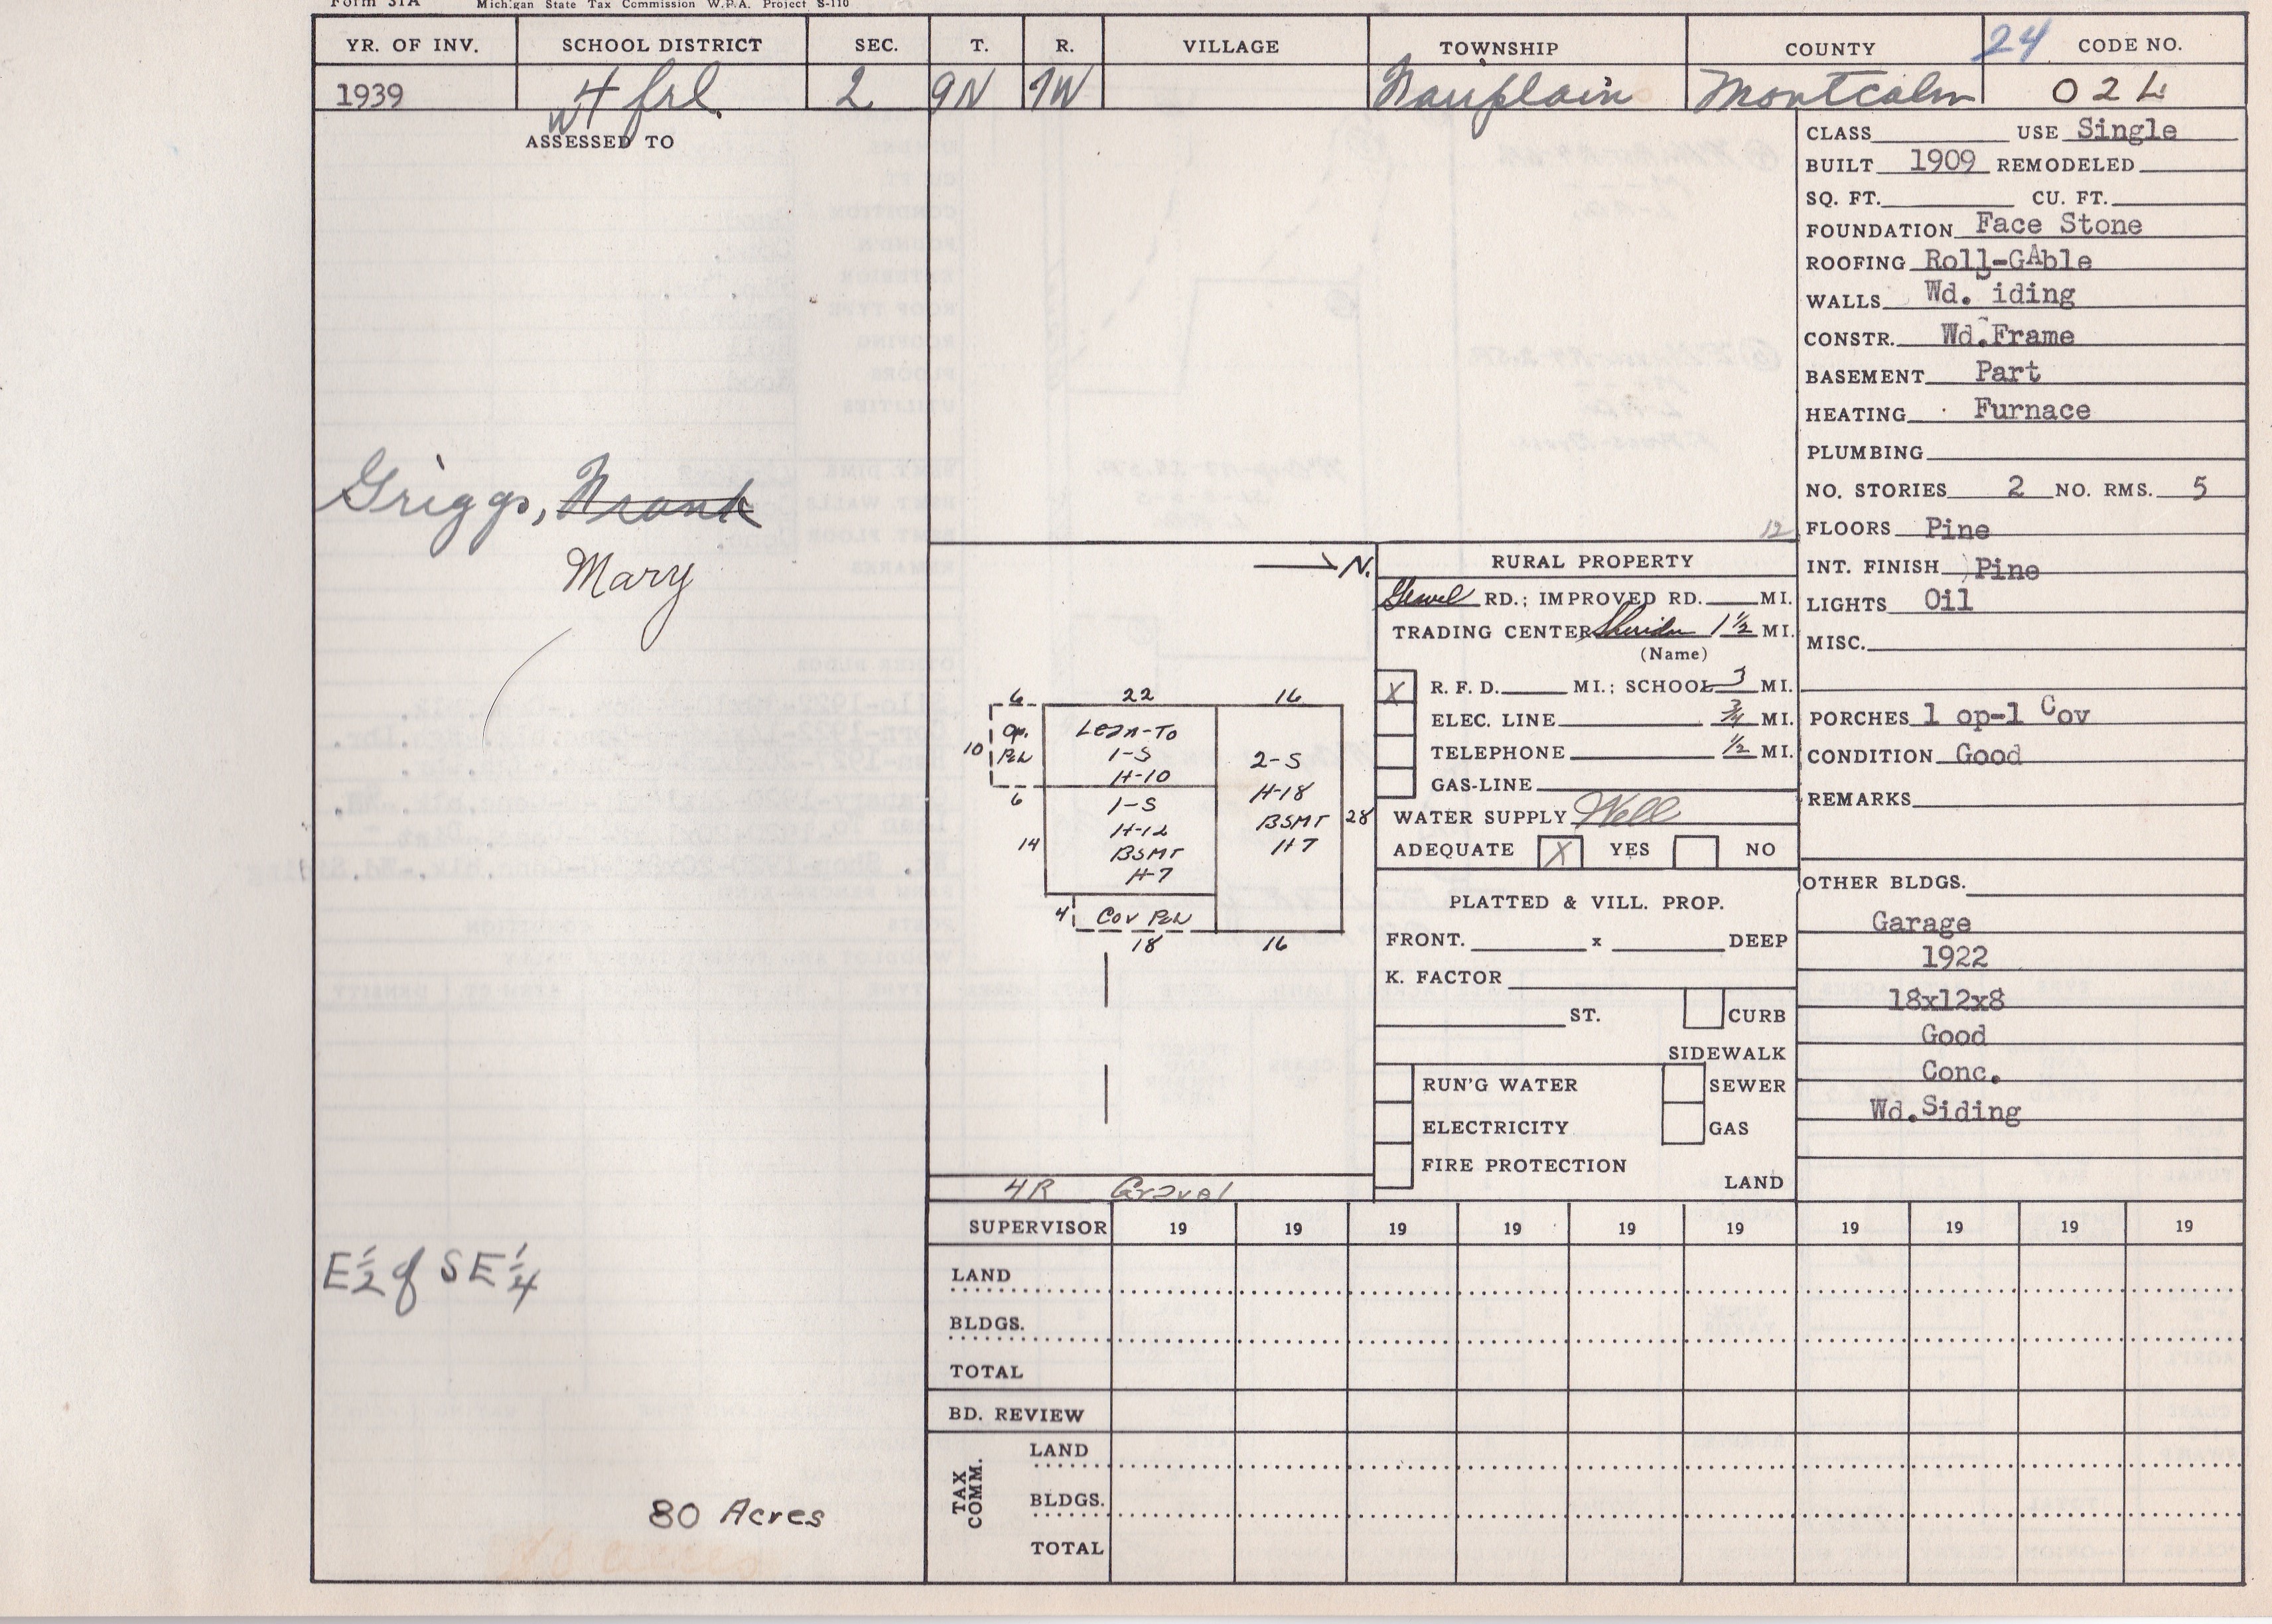 Form 31A Michigan State Tax Commission W.P.A. Project S-110
YR. OF INV. SCHOOL DISTRICT SEC. T. R. VILLAGE TOWNSHIP COUNTY 24 CODE NO.
1939 4 frl. 2 9N 7W Fairplain Montcalm 02L
ASSESSED TO
Griggs, Frank
Mary
E 1/2 of SE 1/4
80 Acres
80 acres
N.
6 22 16
10 Op. Pch
Lean-To
1-S
H-10
6
14
1-S
H-12
BSMT
H-7
2-S
H-18
BSMT
H7
28
4 Cov Pch
18 16
4R Gravel
12
RURAL PROPERTY
Gravel RD.; IMPROVED RD. MI.
TRADING CENTER Sheridan 1 1/2 MI.
(Name)
X R. F. D. MI.; SCHOOL 3 MI.
ELEC. LINE 3/4 MI.
TELEPHONE 1/2 MI.
GAS-LINE
WATER SUPPLY Well
ADEQUATE X YES NO
PLATTED & VILL. PROP.
FRONT. x DEEP
K. FACTOR
ST. CURB
SIDEWALK
RUN'G WATER SEWER
ELECTRICITY GAS
FIRE PROTECTION
LAND
CLASS USE Single
BUILT 1909 REMODELED
SQ. FT. CU. FT.
FOUNDATION Face Stone
ROOFING Roll-GAble
WALLS Wd. Siding
CONSTR. Wd.Frame
BASEMENT Part
HEATING Furnace
PLUMBING
NO. STORIES 2 NO. RMS. 5
FLOORS Pine
INT. FINISH Pine
LIGHTS Oil
MISC.
PORCHES 1 op-1 Cov
CONDITION Good
REMARKS
OTHER BLDGS.
Garage
1922
18x12x8
Good
Conc.
Wd.Siding
SUPERVISOR 19 19 19 19 19 19 19 19 19 19
LAND
BLDGS.
TOTAL
BD. REVIEW
TAX COMM.
LAND
BLDGS.
TOTAL